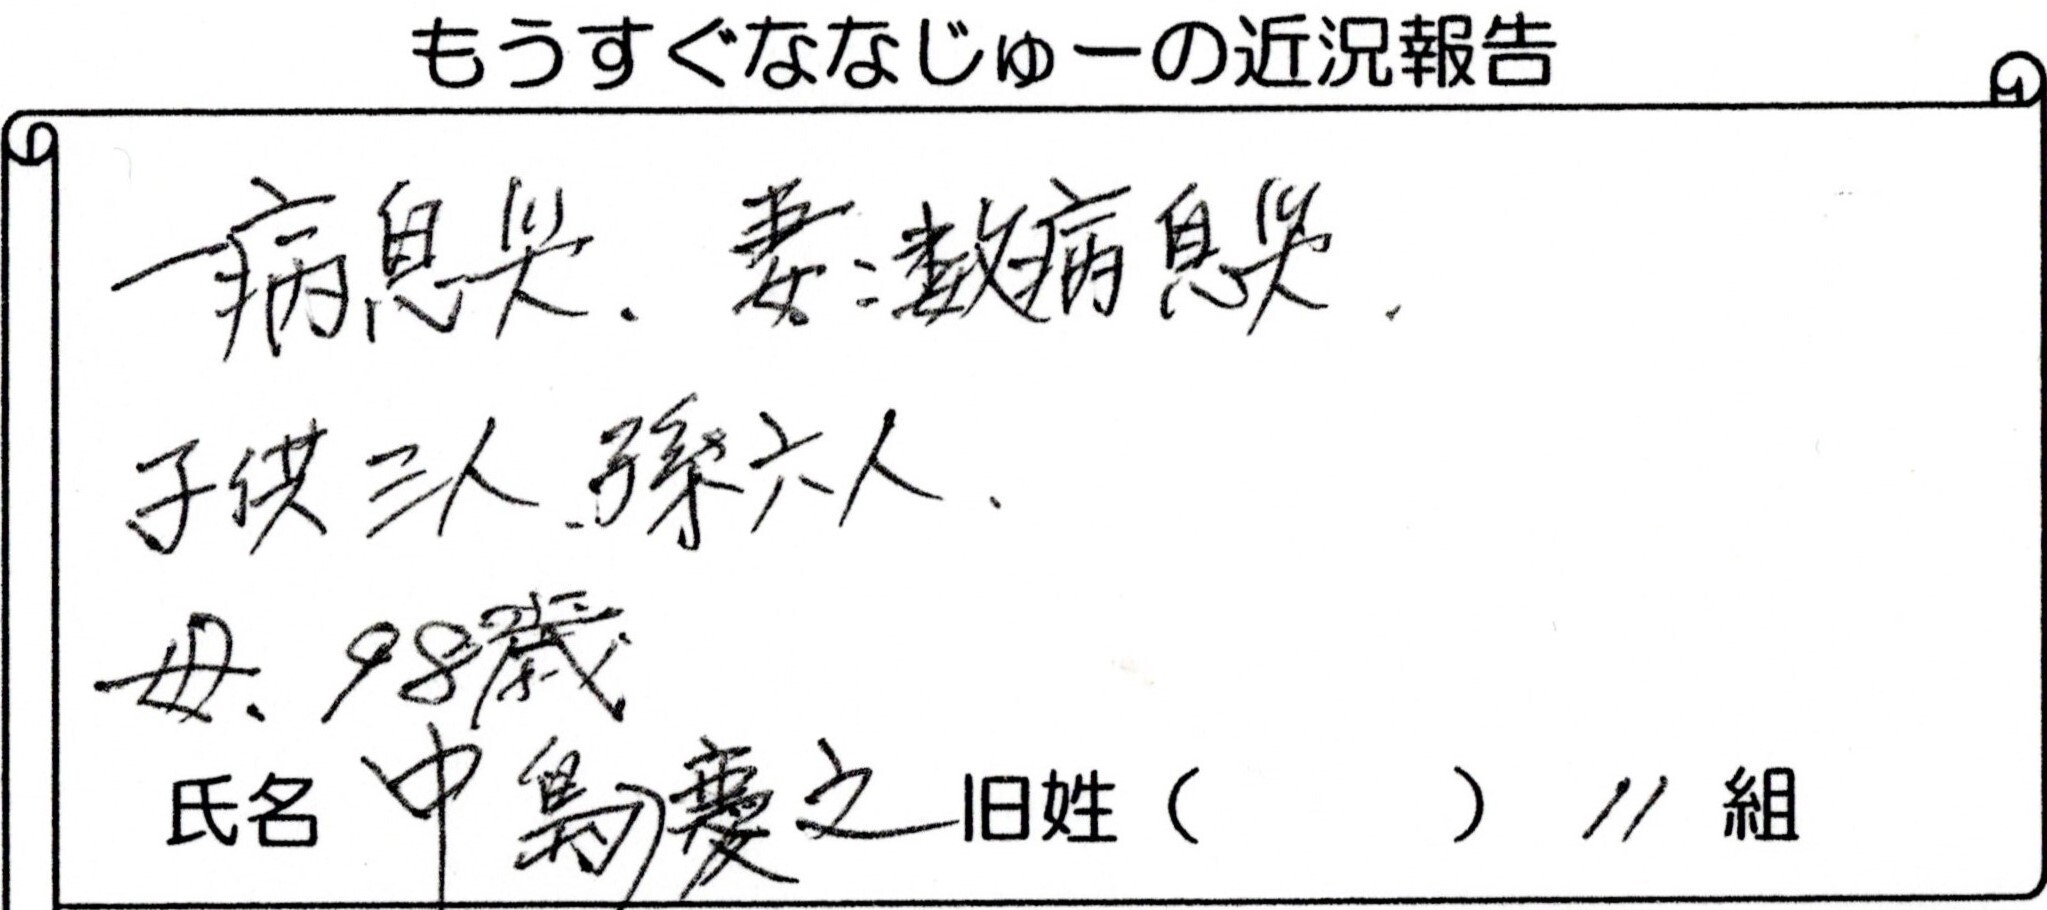 もうすぐななじゅーの近況報告
一病息災. 妻:数病息災.
子供三人.孫六人.
母.98歳
氏名 中島慶之 旧姓( ) 11組